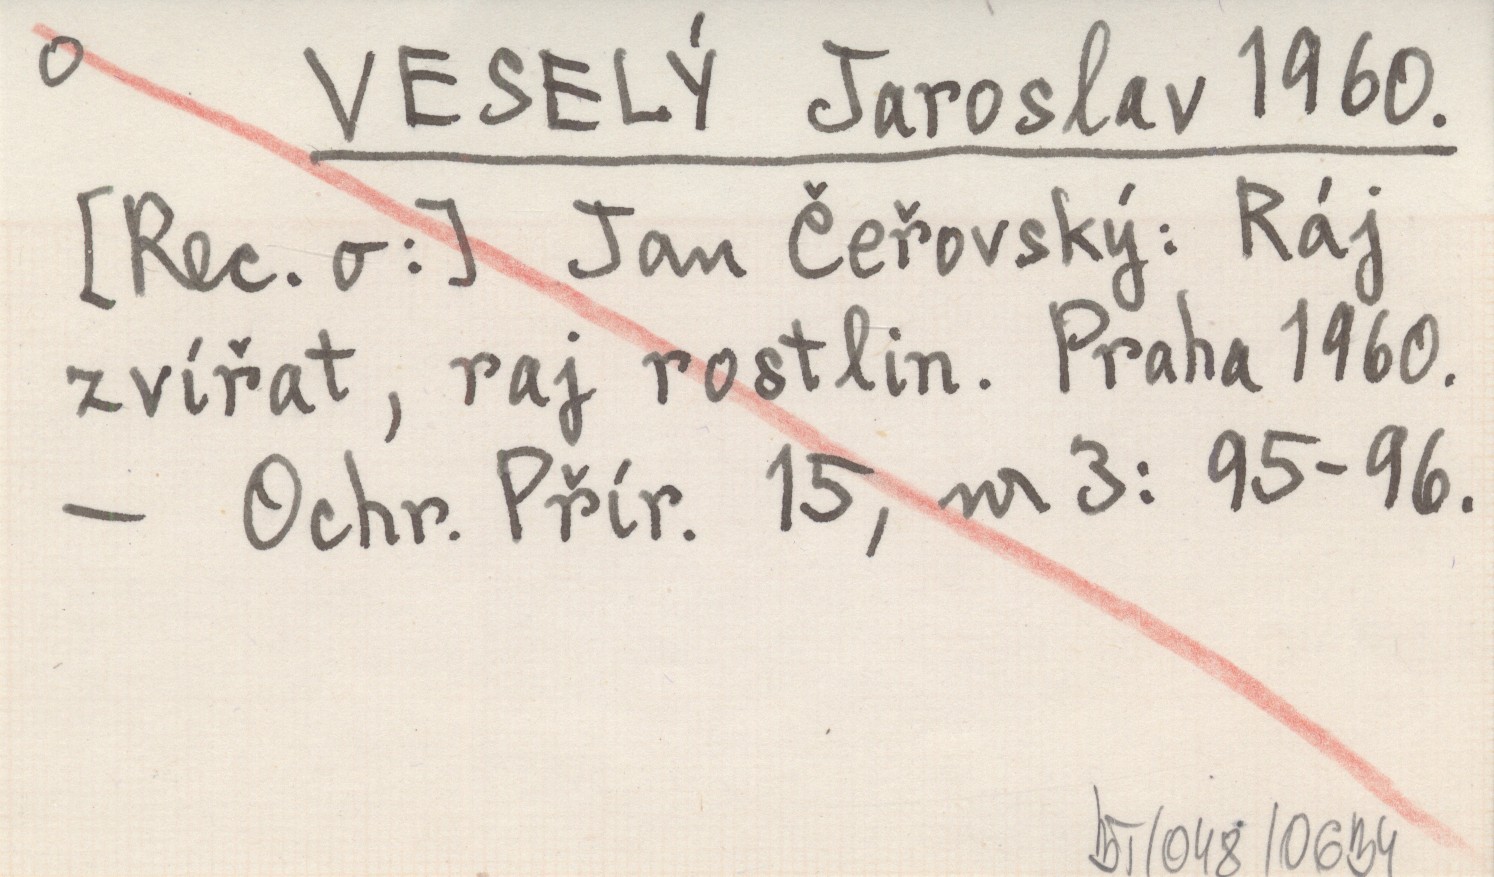 o VESELÝ Jaroslav 1960.
[Rec. o:] Jan Čeřovský: Ráj
zvířat, raj rostlin. Praha 1960.
— Ochr. Přír. 15, nr 3: 95-96.